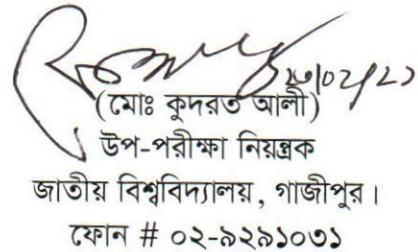 (মোঃ কুদরত আলী)
উপ-পরীক্ষা নিয়ন্ত্রক
জাতীয় বিশ্ববিদ্যালয়, গাজীপুর।
ফোন # ০২-৯২৯১০৩১